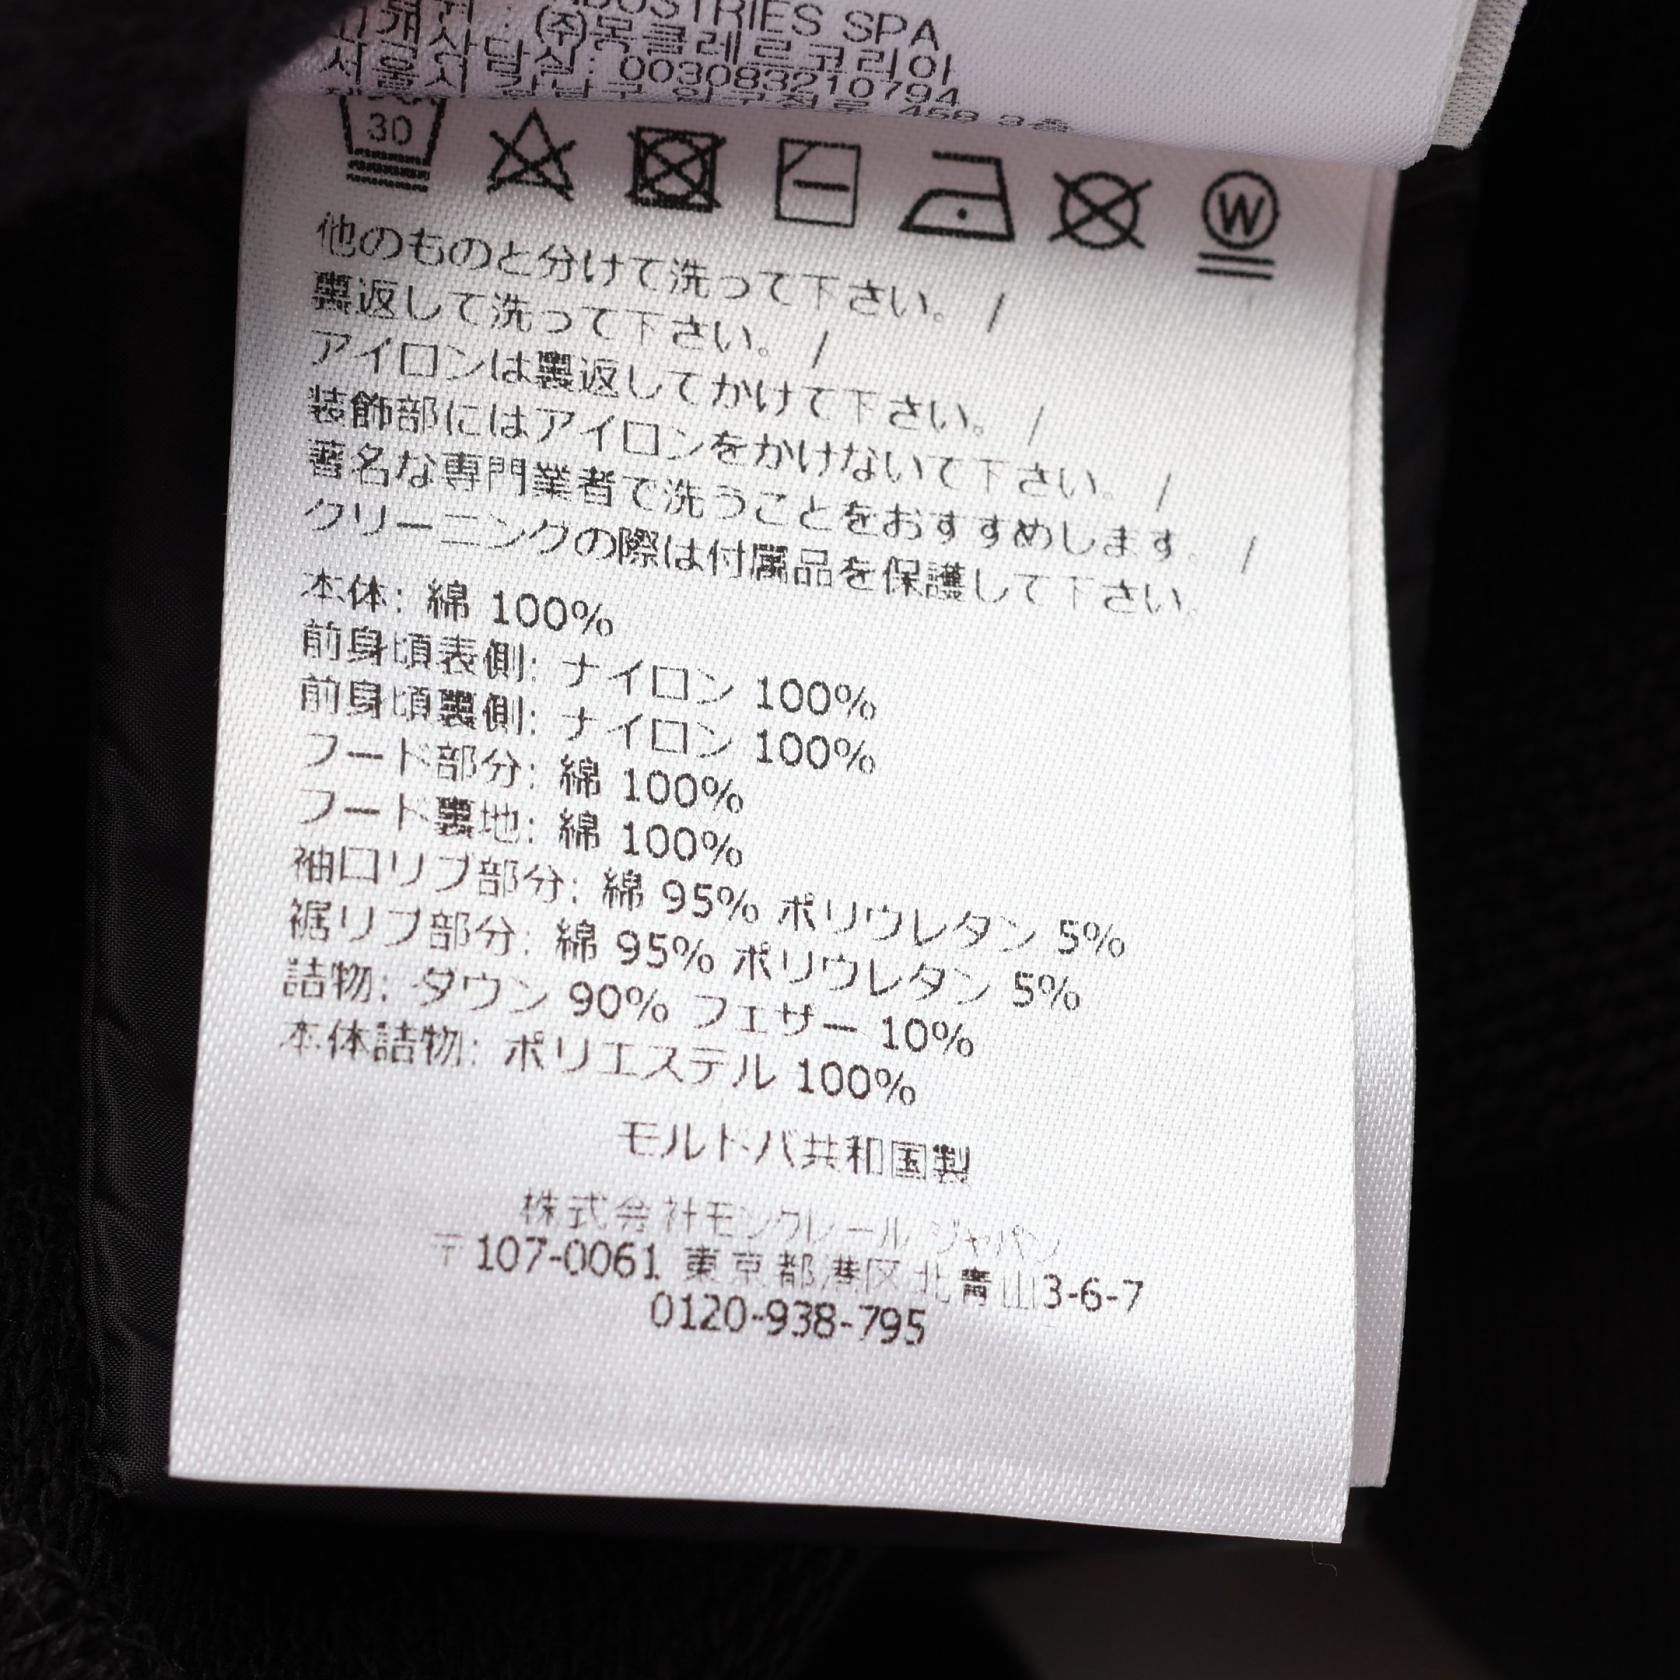 INDUSTRIES SPA
(주)몽클레르코리아
00308321079​4
458 3층
30
W
他のものと分けて洗って下さい。 /
裏返して洗って下さい。 /
アイロンは裏返してかけて下さい。 /
装飾部にはアイロンをかけないで下さい。 /
著名な専門業者で洗うことをおすすめします。 /
クリーニングの際は付属品を保護して下さい。
本体: 綿 100%
前身頃表側: ナイロン 100%
前身頃裏側: ナイロン 100%
フード部分: 綿 100%
フード裏地: 綿 100%
袖口リブ部分: 綿 95% ポリウレタン 5%
裾リブ部分: 綿 95% ポリウレタン 5%
詰物: ダウン 90% フェザー 10%
本体詰物: ポリエステル 100%
モルドバ共和国製
株式会社モンクレール ジャパン
〒107-0061 東京都港区北青山3-6-7
0120-938-795